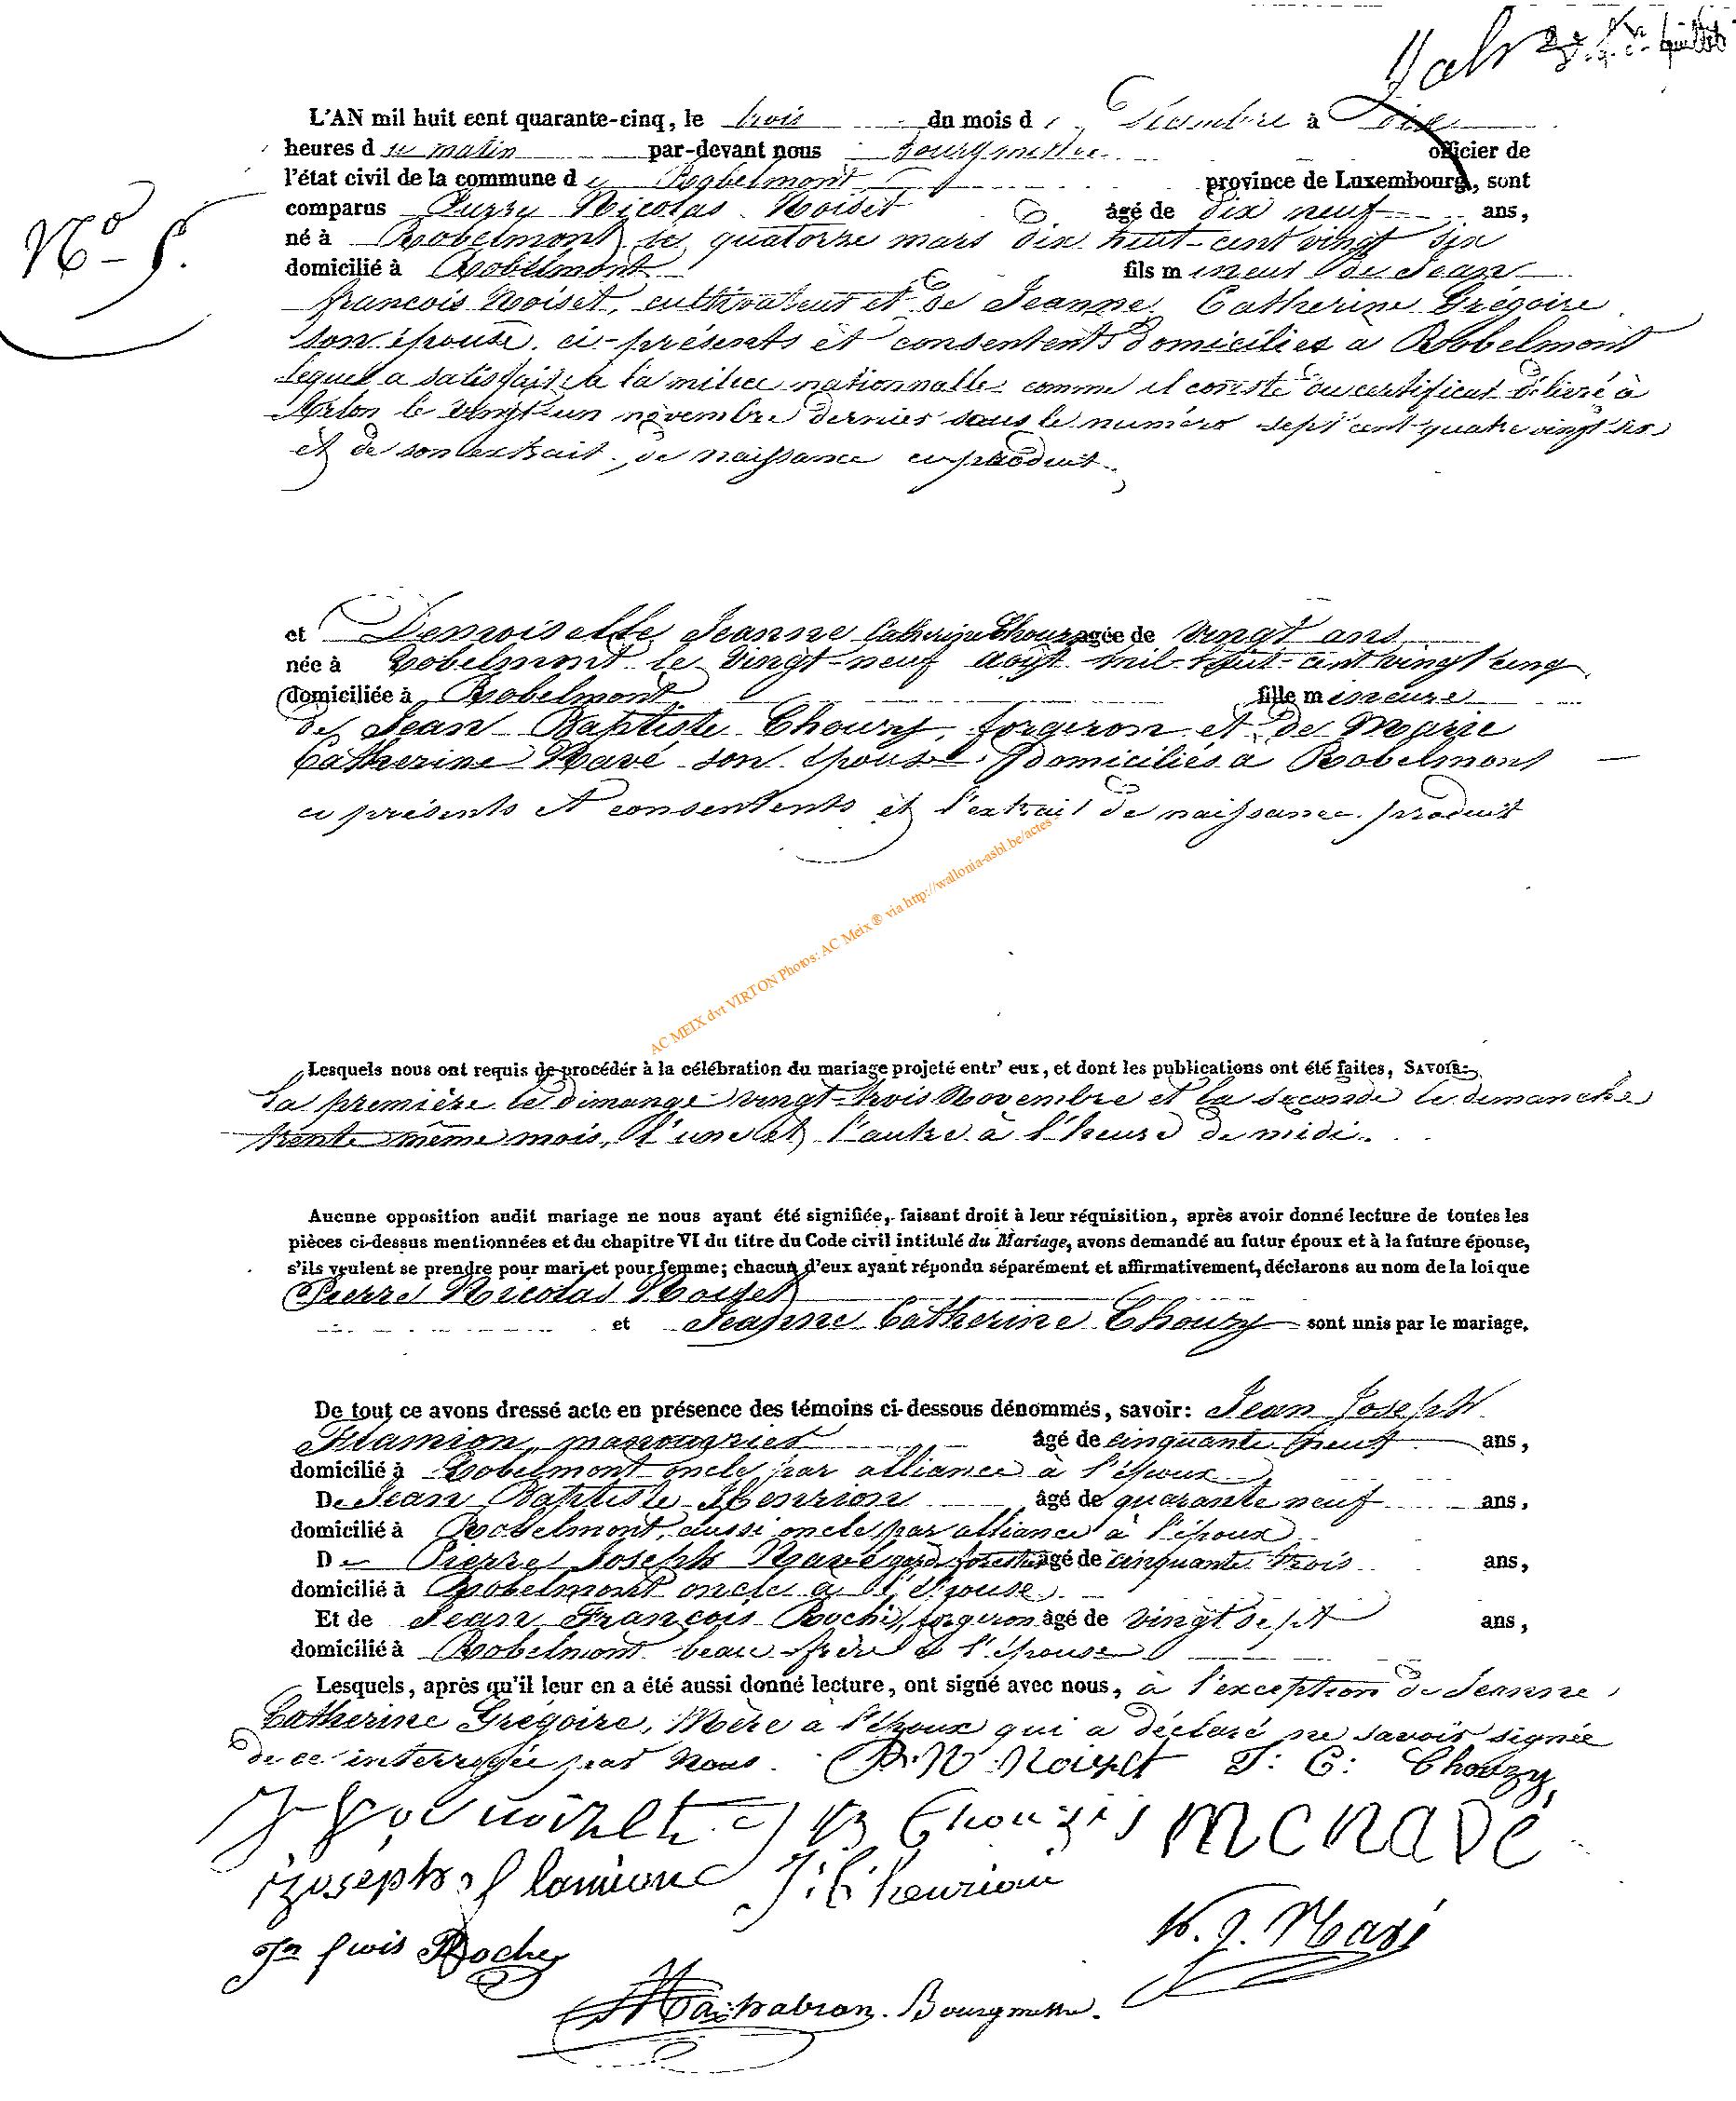 L'AN mil huit cent quarante-cinq, le trois du mois de Décembre à dix
heures du matin par-devant nous bourgmestre officier de
l'état civil de la commune de Robelmont province de Luxembourg, sont
comparus Pierre Nicolas Noiset âgé de dix neuf ans,
né à Robelmont le quatorze mars dix huit-cent vingt six
domicilié à Robelmont fils mineur de Jean
francois Noiset, cultivateur et de Jeanne Catherine Grégoire
son épouse, ci-présents et consentents domiciliés à Robelmont
lequel a satisfait à la milice nationnalle comme il conste du certificat délivré à
Arlon le vingt-un novembre dernier sous le numéro sept cent quatre vingt six
et de son extrait de naissance ci produit.
N° 5.
et Demoiselle Jeanne Catherine Chouzy agée de vingt ans
née à Robelmont le vingt-neuf août mil huit-cent vingt cinq
domiciliée à Robelmont fille mineure
de Jean Baptiste Chouzy, forgeron et de Marie
Catherine Navé son épouse, domiciliés à Robelmont
ci présents et consentents et l'extrait de naissance produit
AC MEIX dvt VIRTON Photos: AC Meix ® via http://wallonia-asbl.be/actes
Lesquels nous ont requis de procéder à la célébration du mariage projeté entr' eux, et dont les publications ont été faites, SAVOIR:
La première le dimange vingt-trois Novembre et la seconde le dimanche
trente même mois, l'une et l'autre à l'heure de midi.
Aucune opposition audit mariage ne nous ayant été signifiée, faisant droit à leur réquisition, après avoir donné lecture de toutes les
pièces ci-dessus mentionnées et du chapitre VI du titre du Code civil intitulé du Mariage, avons demandé au futur époux et à la future épouse,
s'ils veulent se prendre pour mari et pour femme; chacun d'eux ayant répondu séparément et affirmativement, déclarons au nom de la loi que
Pierre Nicolas Noiset
et Jeanne Catherine Chouzy sont unis par le mariage.
De tout ce avons dressé acte en présence des témoins ci-dessous dénommés, savoir: Jean Joseph
Flamion, manouvrier âgé de cinquante neuf ans,
domicilié à Robelmont oncle par alliance à l'époux
De Jean Baptiste Henrion âgé de quarante neuf ans,
domicilié à Robelmont, aussi oncle par alliance à l'époux
De Pierre Joseph Navé garde forestier âgé de cinquante trois ans,
domicilié à Robelmont oncle à l'épouse
Et de Jean François Roché, forgeron âgé de vingt sept ans,
domicilié à Robelmont beau frère à l'épouse
Lesquels, après qu'il leur en a été aussi donné lecture, ont signé avec nous, à l'exception de Jeanne
Catherine Grégoire, Mère à l'époux qui a déclaré ne savoir signée
de ce interrogée par Nous. P. N. Noiset J: C: Chouzy
noizet J B Chouzi mc navé
joseph flamion J: B: henrion
Jn fcois Roche P. J. Navé
Bourgmestre.